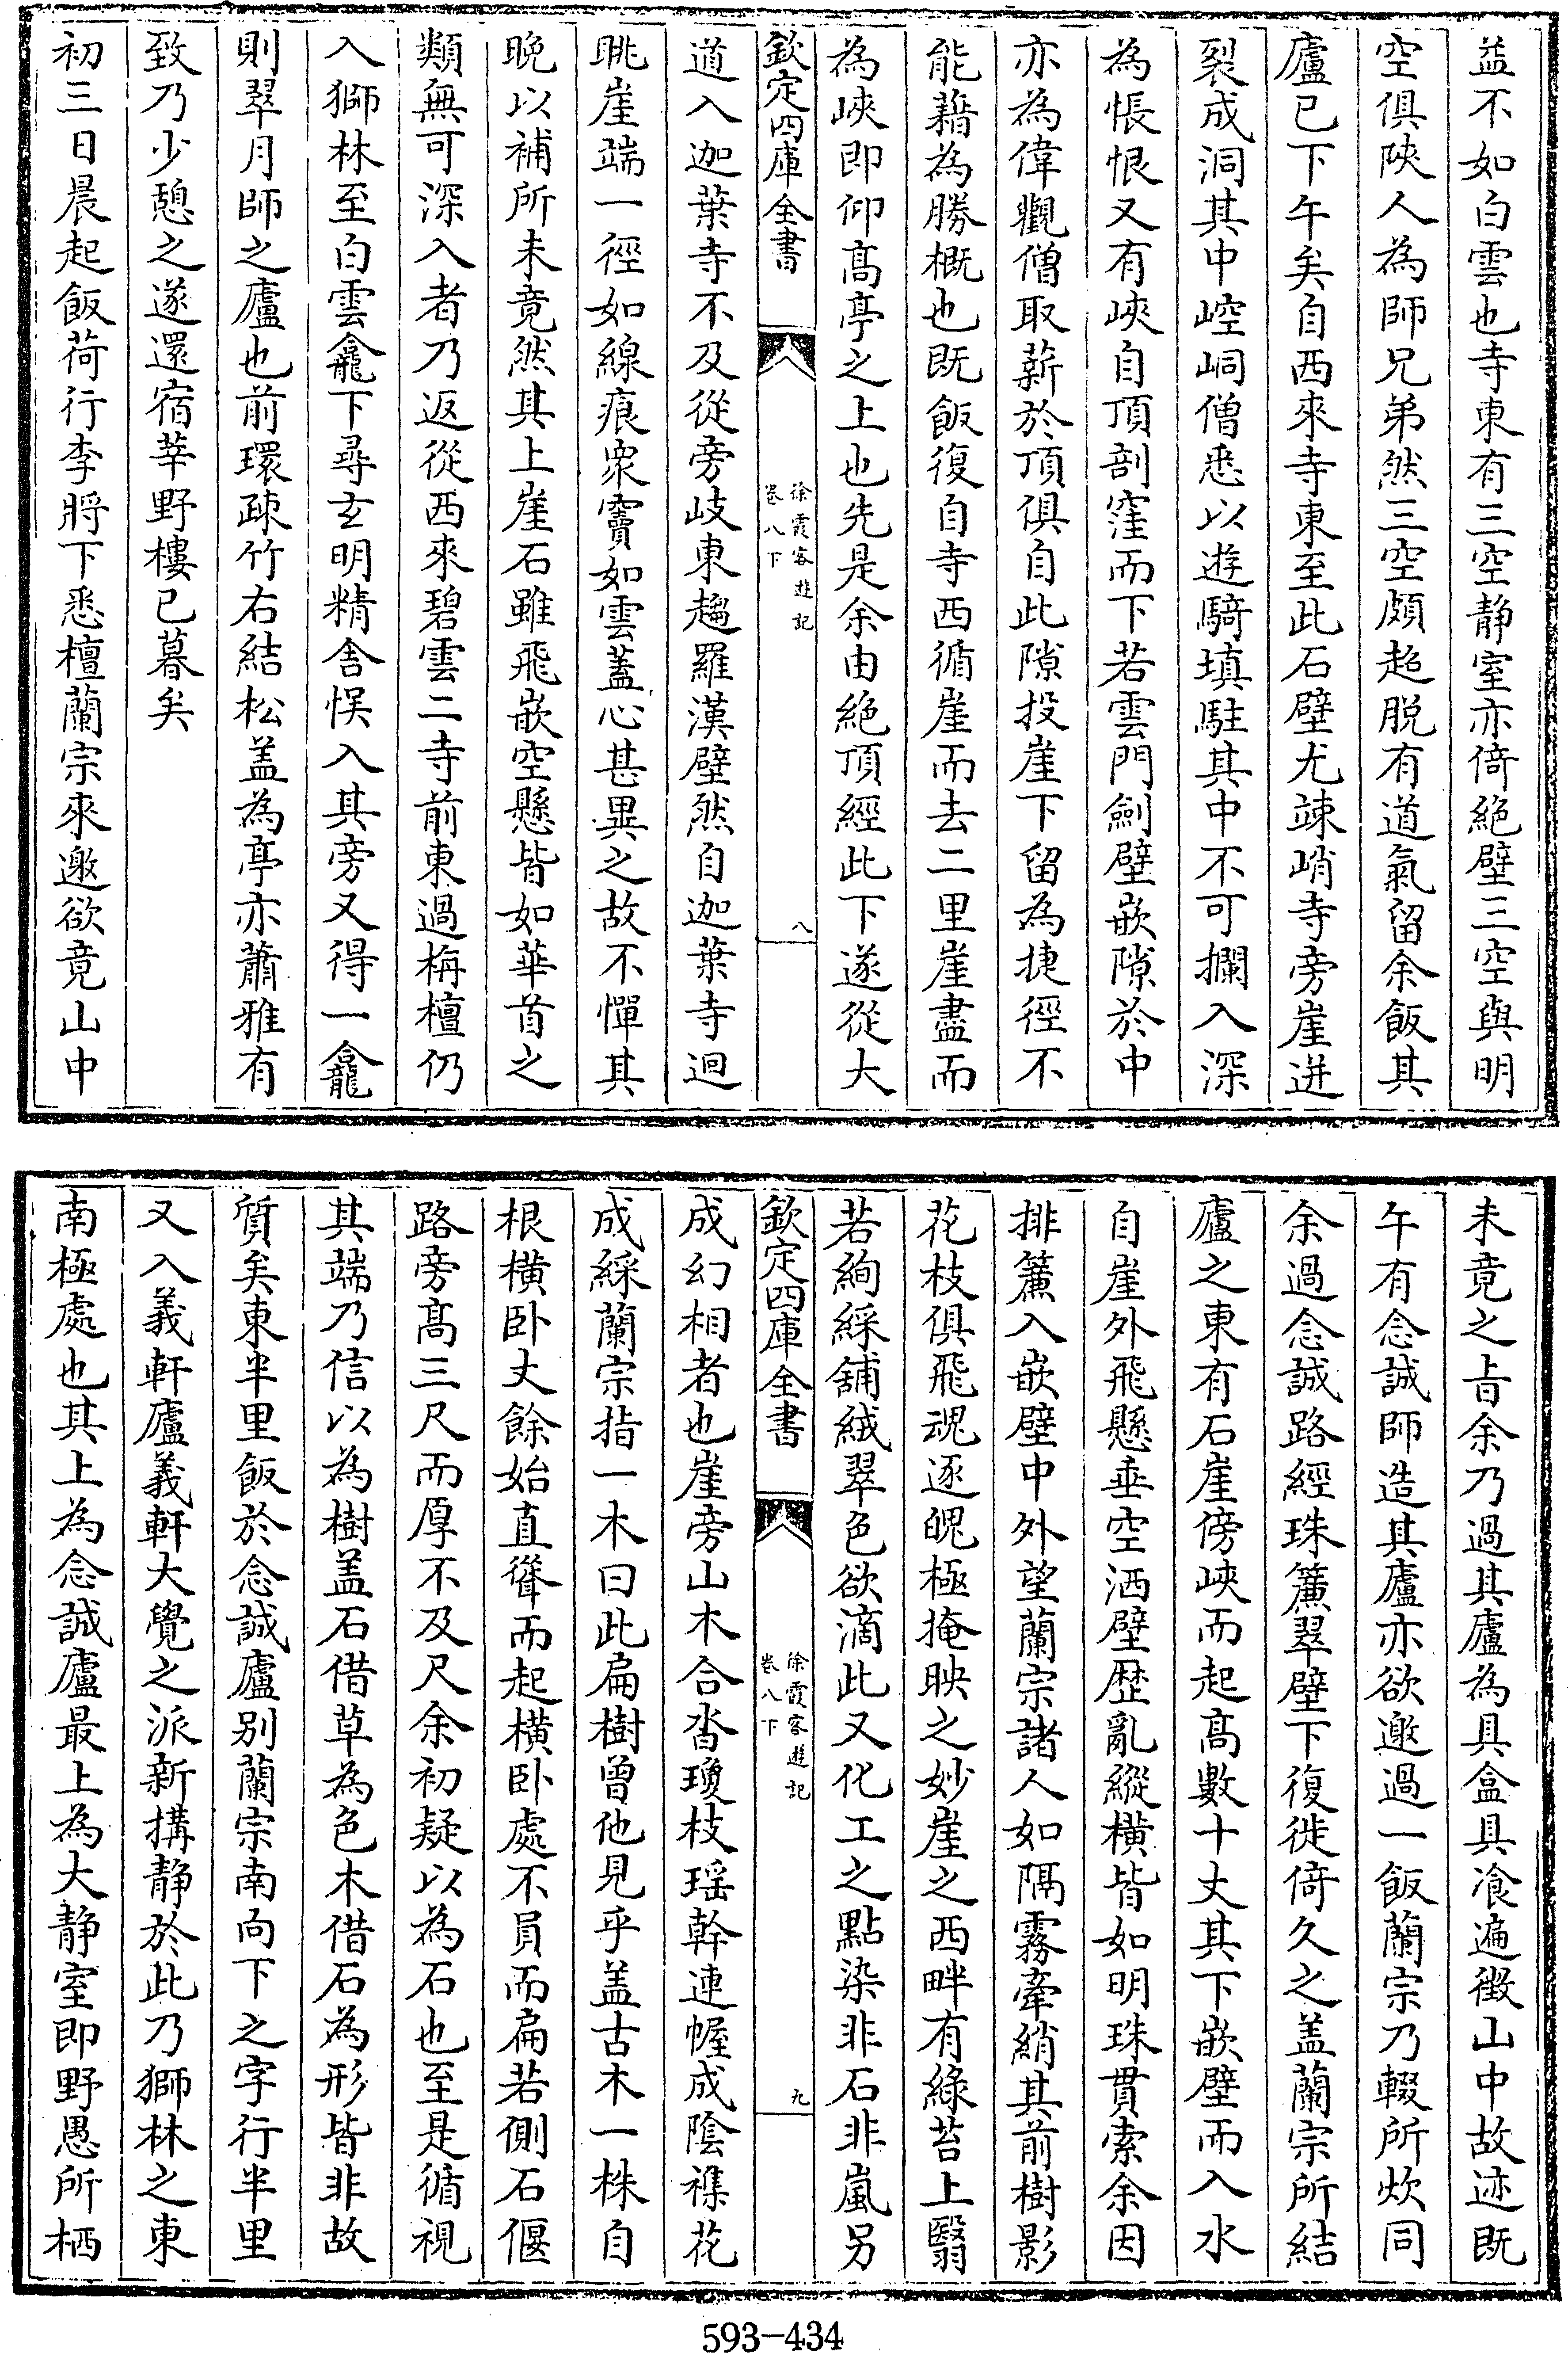 益不如白雲也寺東有三空静室亦倚絶壁三空與明
空俱陜人為師兄弟然三空頗超脱有道氣留余飯其
廬已下午矣自西來寺東至此石壁尤竦峭寺旁崖迸
裂成洞其中崆峒僧悉以遊騎填駐其中不可攔入深
為悵恨又有峽自頂剖窪而下若雲門劍壁嵌隙於中
亦為偉觀僧取薪於頂俱自此隙投崖下留為捷徑不
能藉為勝概也既飯復自寺西循崖而去二里崖盡而
為峽即仰髙亭之上也先是余由絶頂經此下遂從大
欽定四庫全書
徐霞客遊記
卷八下
八
道入迦葉寺不及從旁岐東趨羅漢壁然自迦葉寺迴
眺崖端一徑如線痕衆竇如雲蓋心甚異之故不憚其
晚以補所未竟然其上崖石雖飛嵌空懸皆如華首之
類無可深入者乃返從西來碧雲二寺前東過栴檀仍
入獅林至白雲龕下尋玄明精舍悞入其旁又得一龕
則翠月師之廬也前環疎竹右結松盖為亭亦蕭雅有
致乃少憩之遂還宿莘野樓已暮矣
初三日晨起飯荷行李將下悉檀蘭宗來邀欲竟山中
未竟之㫖余乃過其廬為具盒具飡遍徴山中故迹既
午有念誠師造其廬亦欲邀過一飯蘭宗乃輟所炊同
余過念誠路經珠簾翠壁下復徙倚久之盖蘭宗所結
廬之東有石崖傍峽而起髙數十丈其下嵌壁而入水
自崖外飛懸垂空洒壁歴亂縱横皆如明珠貫索余因
排簾入嵌壁中外望蘭宗諸人如隔霧牽綃其前樹影
花枝俱飛魂逐魄極掩映之妙崖之西畔有綠苔上翳
若絢綵鋪絨翠色欲滴此又化工之點染非石非嵐另
欽定四庫全書
徐霞客遊記
卷八下
九
成幻相者也崖旁山木合沓瓊枝瑶幹連幄成陰襍花
成綵蘭宗指一木曰此扁樹曾他見乎盖古木一株自
根横卧丈餘始直聳而起横卧處不員而扁若側石偃
路旁髙三尺而厚不及尺余初疑以為石也至是循視
其端乃信以為樹盖石借草為色木借石為形皆非故
質矣東半里飯於念誠廬别蘭宗南向下之字行半里
又入義軒廬義軒大覺之派新搆静於此乃獅林之東
南極處也其上為念誠廬最上為大静室即野愚所栖
593-434